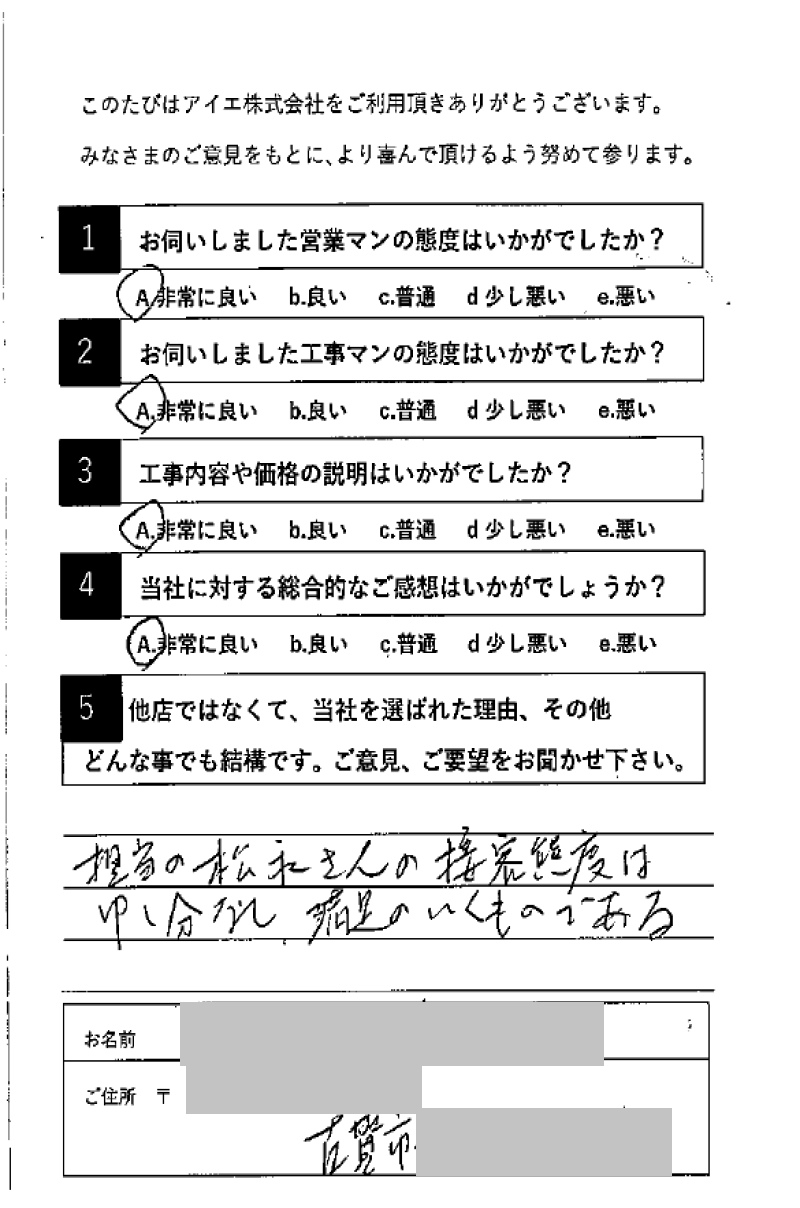 このたびはアイエ株式会社をご利用頂きありがとうございます。
みなさまのご意見をもとに、より喜んで頂けるよう努めて参ります。
1 お伺いしました営業マンの態度はいかがでしたか？
A.非常に良い b.良い c.普通 d 少し悪い e.悪い
2 お伺いしました工事マンの態度はいかがでしたか？
A.非常に良い b.良い c.普通 d 少し悪い e.悪い
3 工事内容や価格の説明はいかがでしたか？
A.非常に良い b.良い c.普通 d 少し悪い e.悪い
4 当社に対する総合的なご感想はいかがでしょうか？
A.非常に良い b.良い c.普通 d 少し悪い e.悪い
5 他店ではなくて、当社を選ばれた理由、その他
どんな事でも結構です。ご意見、ご要望をお聞かせ下さい。
担当の松永さんの接客態度は
申し分なし、満足のいくものである
お名前
ご住所 〒
古賀市